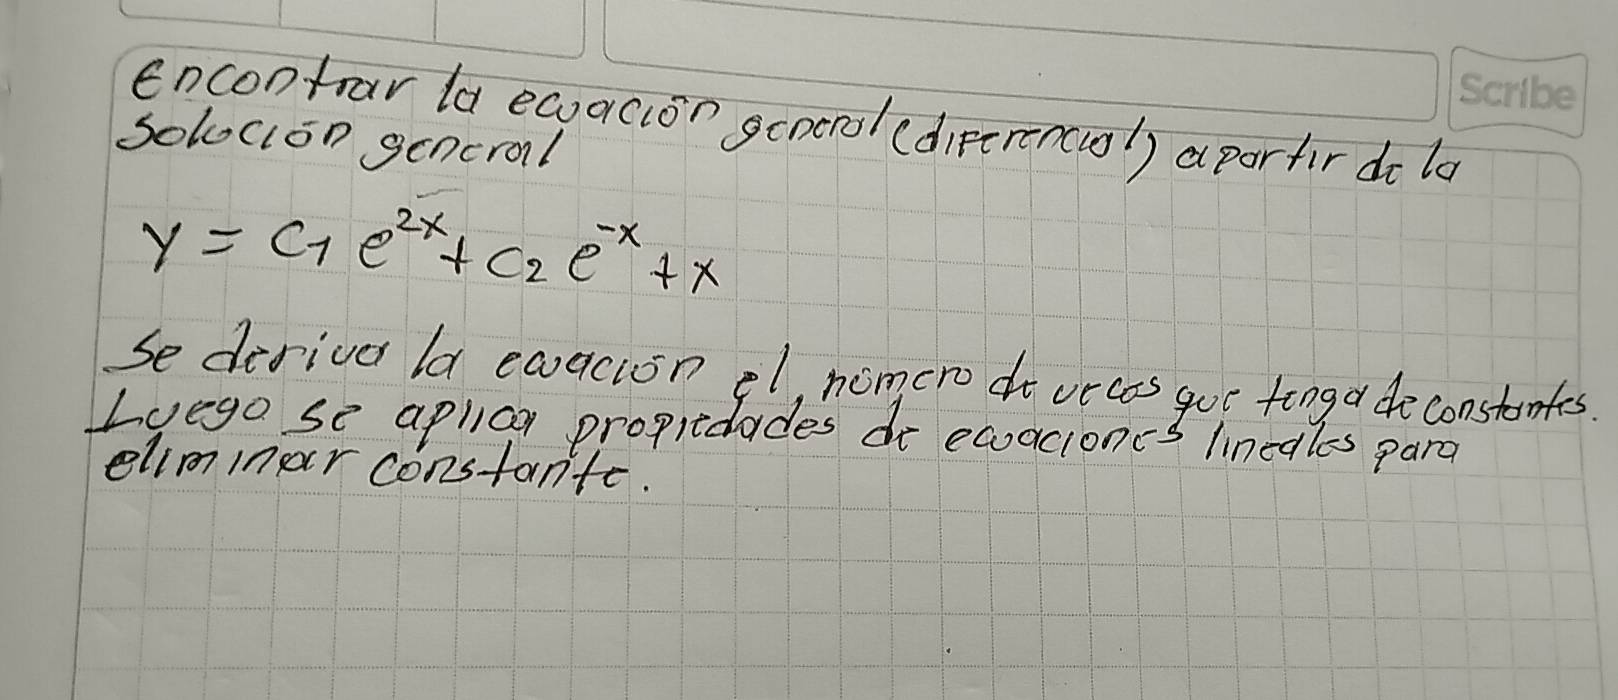 Scribe
Encontrar la ecuación general (diferencial) a partir de la
solución general
y = C1 e^2x + C2 e^-x + x
se deriva la ecuación el número de veces que tenga de constantes.
Luego se aplica propiedades de ecuaciones lineales para
eliminar constante.